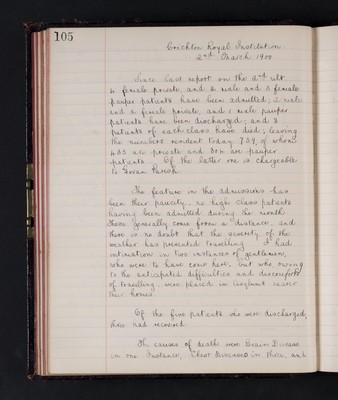 105
Crichton Royal Institution
2nd March 1900
Since last report on the 2nd ult
4 female private, and 2 male and 3 female
pauper patients have been admitted; 2 male
and 2 female private, and 1 male pauper
patients have been discharged; and 3
patients of each class have died; leaving
the numbers resident today 739, of whom
435 are private and 304 are pauper
patients. Of the latter one is chargeable
to Govan Parish.
The feature in the admissions has
been their paucity, no high class patients
having been admitted during the month.
These generally come from a distance, and
there is no doubt that the severity of the
weather has prevented travelling. I had
intimation in two instances of gentlemen,
who were to have come here, but who owing
to the anticipated difficulties and discomforts
of travelling, were placed in asylums nearer
their homes.
Of the five patients who were discharged,
three had recovered.
The causes of death were Brain Disease
in one instance, Chest Diseases in three, and